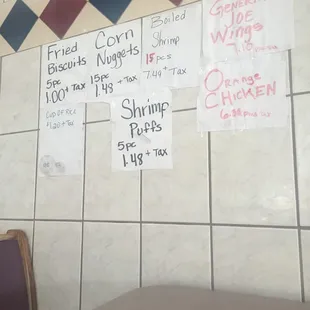 Fried
Biscuits
5pc
1.00 + Tax
Corn
Nuggets
15pc
1.48 + Tax
Boiled
Shrimp
15 pcs
7.49 + Tax
General
JOE
Wings
Orange
CHICKEN
Shrimp
Puffs
5pc
1.48 + Tax